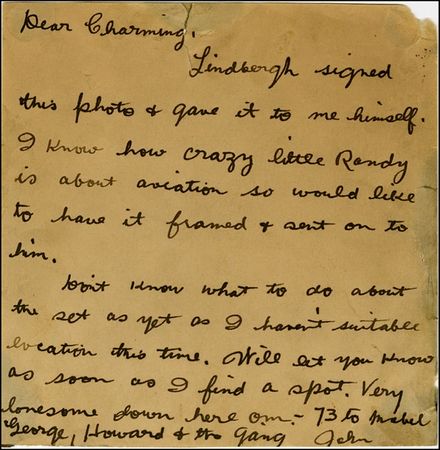 Dear Charming,
Lindbergh signed
this photo & gave it to me himself.
I know how crazy little Randy
is about aviation so would like
to have it framed & sent on to
him.
Don't know what to do about
the set as yet as I haven't suitable
location this time. Will let you know
as soon as I find a spot. Very
lonesome down here o.m. - 73 to Mabel
George, Howard & the Gang John